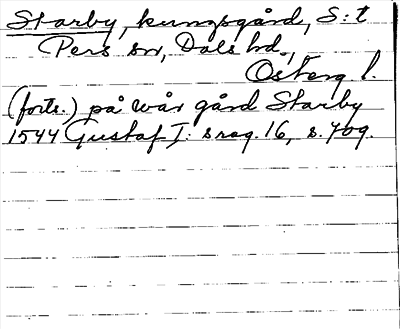 Starby, kungsgård, S:t
Pers sn, Dals hd.,
Österg l.
(forts.) på wår gård Starby
1544 Gustaf I:s reg. 16, s. 709.